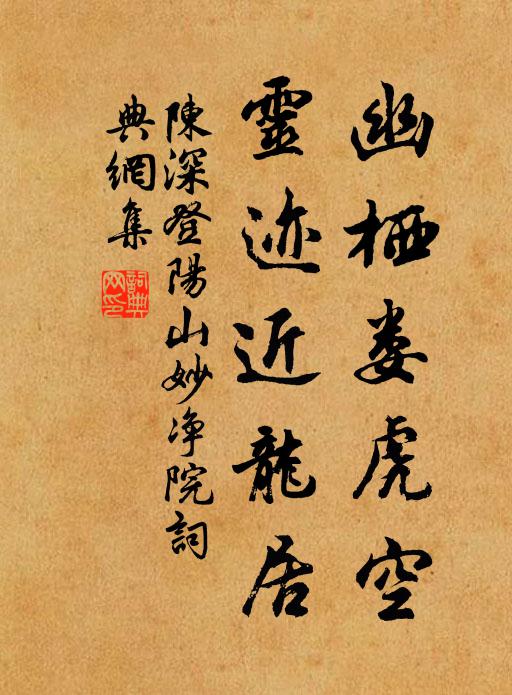 幽栖娄虎空
靈迹近龍居
陳深登陽山妙净院詞
典網集
詞典网印